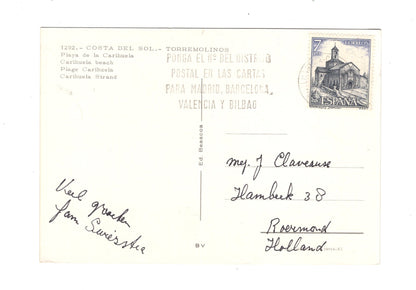 1292.- COSTA DEL SOL.- TORREMOLINOS
Playa de la Carihuela
Carihuela beach
Plage Carihuela
Carihuela Strand
PONGA EL Nº DEL DISTRITO
POSTAL EN LAS CARTAS
PARA MADRID, BARCELONA,
VALENCIA Y BILBAO
7
CORREOS
ESPAÑA
Ed. Bessacos
mej. J
Hambeek 38
Roermond
Holland
Veel groeten
fam
BV